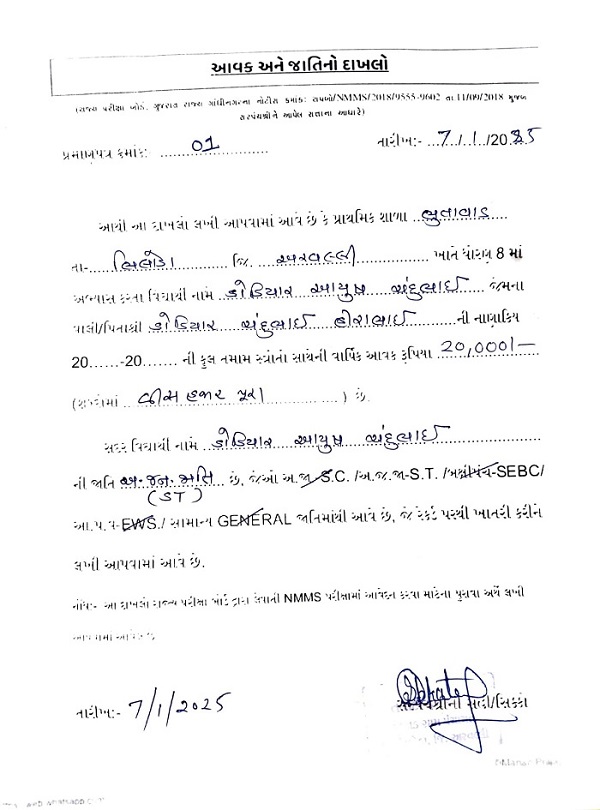 આવક અને જાતિનો દાખલો
(રાજ્ય પરીક્ષા બોર્ડ, ગુજરાત રાજ્ય ગાંધીનગરના નોટીસ ક્રમાંક: રાપબો/NMMS/2018/9555-9602 તા.11/09/2018 મુજબ
સરપંચશ્રીને આપેલ સત્તાના આધારે)
પ્રમાણપત્ર ક્રમાંક: 01 તારીખ:- 7/1/2025
આથી આ દાખલો લખી આપવામાં આવે છે કે પ્રાથમિક શાળા ભુતાવાડ
તા- ભિલોડા જિ. અરવલ્લી ખાતે ધોરણ 8 માં
અભ્યાસ કરતા વિદ્યાર્થી નામ ડોડિયાર આયુષ ચંદુભાઈ જેમના
વાલી/પિતાશ્રી ડોડિયાર ચંદુભાઈ હીરાભાઈ ની નાણાકિય
20......-20....... ની કુલ તમામ સ્ત્રોતો સાથેની વાર્ષિક આવક રૂપિયા 20,000/-
(શબ્દોમાં વીસ હજાર પૂરા ) છે.
સદર વિદ્યાર્થી નામ ડોડિયાર આયુષ ચંદુભાઈ
ની જાતિ અ.જન.જાતિ (ST) છે, જેઓ અ.જા-S.C. /અ.જ.જા-S.T. /બક્ષીપંચ-SEBC/
આ.પ.વ-EWS./ સામાન્ય GENERAL જાતિમાંથી આવે છે, જે રેકર્ડ પરથી ખાતરી કરીને
લખી આપવામાં આવે છે.
નોંધ:- આ દાખલો રાજ્ય પરીક્ષા બોર્ડ દ્વારા લેવાતી NMMS પરીક્ષામાં આવેદન કરવા માટેના પુરાવા અર્થે લખી
આપવામાં આવેલ છે.
તારીખ:- 7/1/2025
સરપંચશ્રીની સહી/સિક્કો